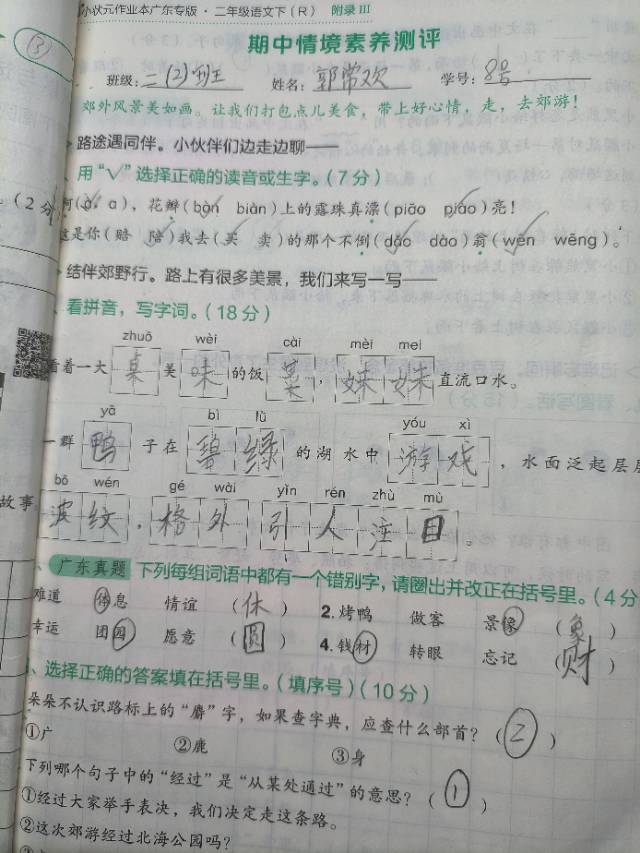 小状元作业本广东专版·二年级语文下（R） 附录Ⅲ
③
期中情境素养测评
班级：二(2)班 姓名：郭常欢 学号：8号
郊外风景美如画。让我们打包点儿美食，带上好心情，走，去郊游！
路途遇同伴。小伙伴们边走边聊——
、用“√”选择正确的读音或生字。（7分）
（2分 阿（ā ɑ），花瓣（bàn biàn）上的露珠真漂（piāo piào）亮！
这是你（赔 陪）我去（买 卖）的那个不倒（dǎo dào）翁（wēn wēng）。
结伴郊野行。路上有很多美景，我们来写一写——
、看拼音，写字词。（18分）
zhuō wèi cài mèi mei
看着一大桌美味的饭菜，妹妹直流口水。
yā bì lǜ yóu xì
一群鸭子在碧绿的湖水中游戏，水面泛起层层
bō wén gé wài yǐn rén zhù mù
故事 波纹，格外引人注目。
、广东真题 下列每组词语中都有一个错别字，请圈出并改正在括号里。（4分
难道 体息 情谊 （休） 2.烤鸭 做客 景像 （象）
幸运 团园 愿意 （圆） 4.钱材 转眼 忘记 （财）
、选择正确的答案填在括号里。（填序号）（10分）
朵朵不认识路标上的“麝”字，如果查字典，应查什么部首？（2）
①广 ②鹿 ③身
下列哪个句子中的“经过”是“从某处通过”的意思？（1）
①经过大家举手表决，我们决定走这条路。
②这次郊游经过北海公园吗？